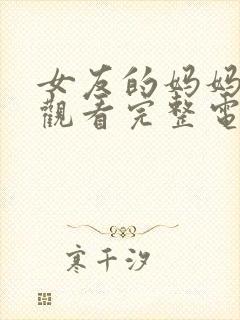 女友的妈妈
觀看完整電
寒千汐